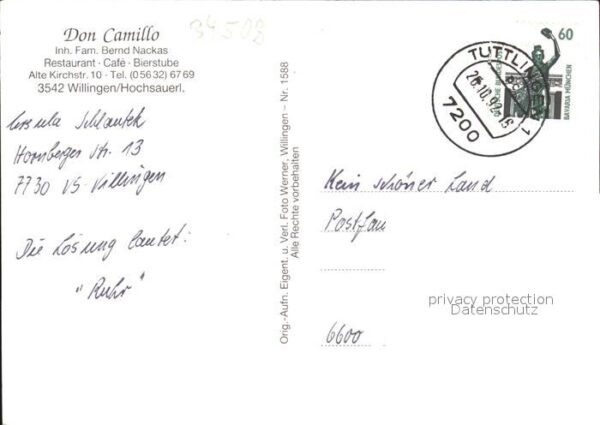 Don Camillo
Inh. Fam. Bernd Nackas
Restaurant · Café · Bierstube
Alte Kirchstr. 10 · Tel. (0 56 32) 67 69
3542 Willingen/Hochsauerl.
34508
Ursula Schlantek
Hornberger Str. 13
7730 VS-Villingen
Die Lösung lautet:
"Ruhr"
Orig.-Aufn. Eigent. u. Verl. Foto Werner, Willingen - Nr. 1588
Alle Rechte vorbehalten
60
DEUTSCHE BUNDESPOST
BAVARIA MÜNCHEN
TUTTLINGEN 1
26.10.92-18
7200
Kein schöner Land
Postfau
6600
privacy protection
Datenschutz